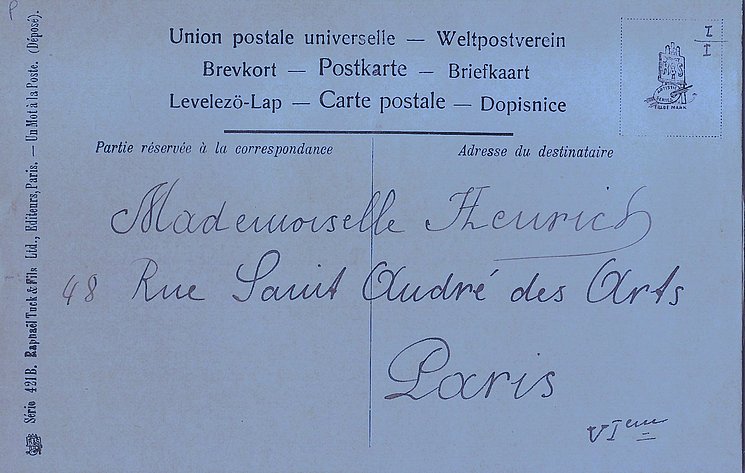 Union postale universelle — Weltpostverein
Brevkort — Postkarte — Briefkaart
Levelezö-Lap — Carte postale — Dopisnice
Partie réservée à la correspondance
Adresse du destinataire
Mademoiselle Heurich
48 Rue Saint André des Arts
Paris
VIeme
I
I
P
Série 421B. Raphaël Tuck & Fils Ltd., Editeurs, Paris. — Un Mot à la Poste. (Déposé).
ARTISTIC
SERIES
TRADE MARK